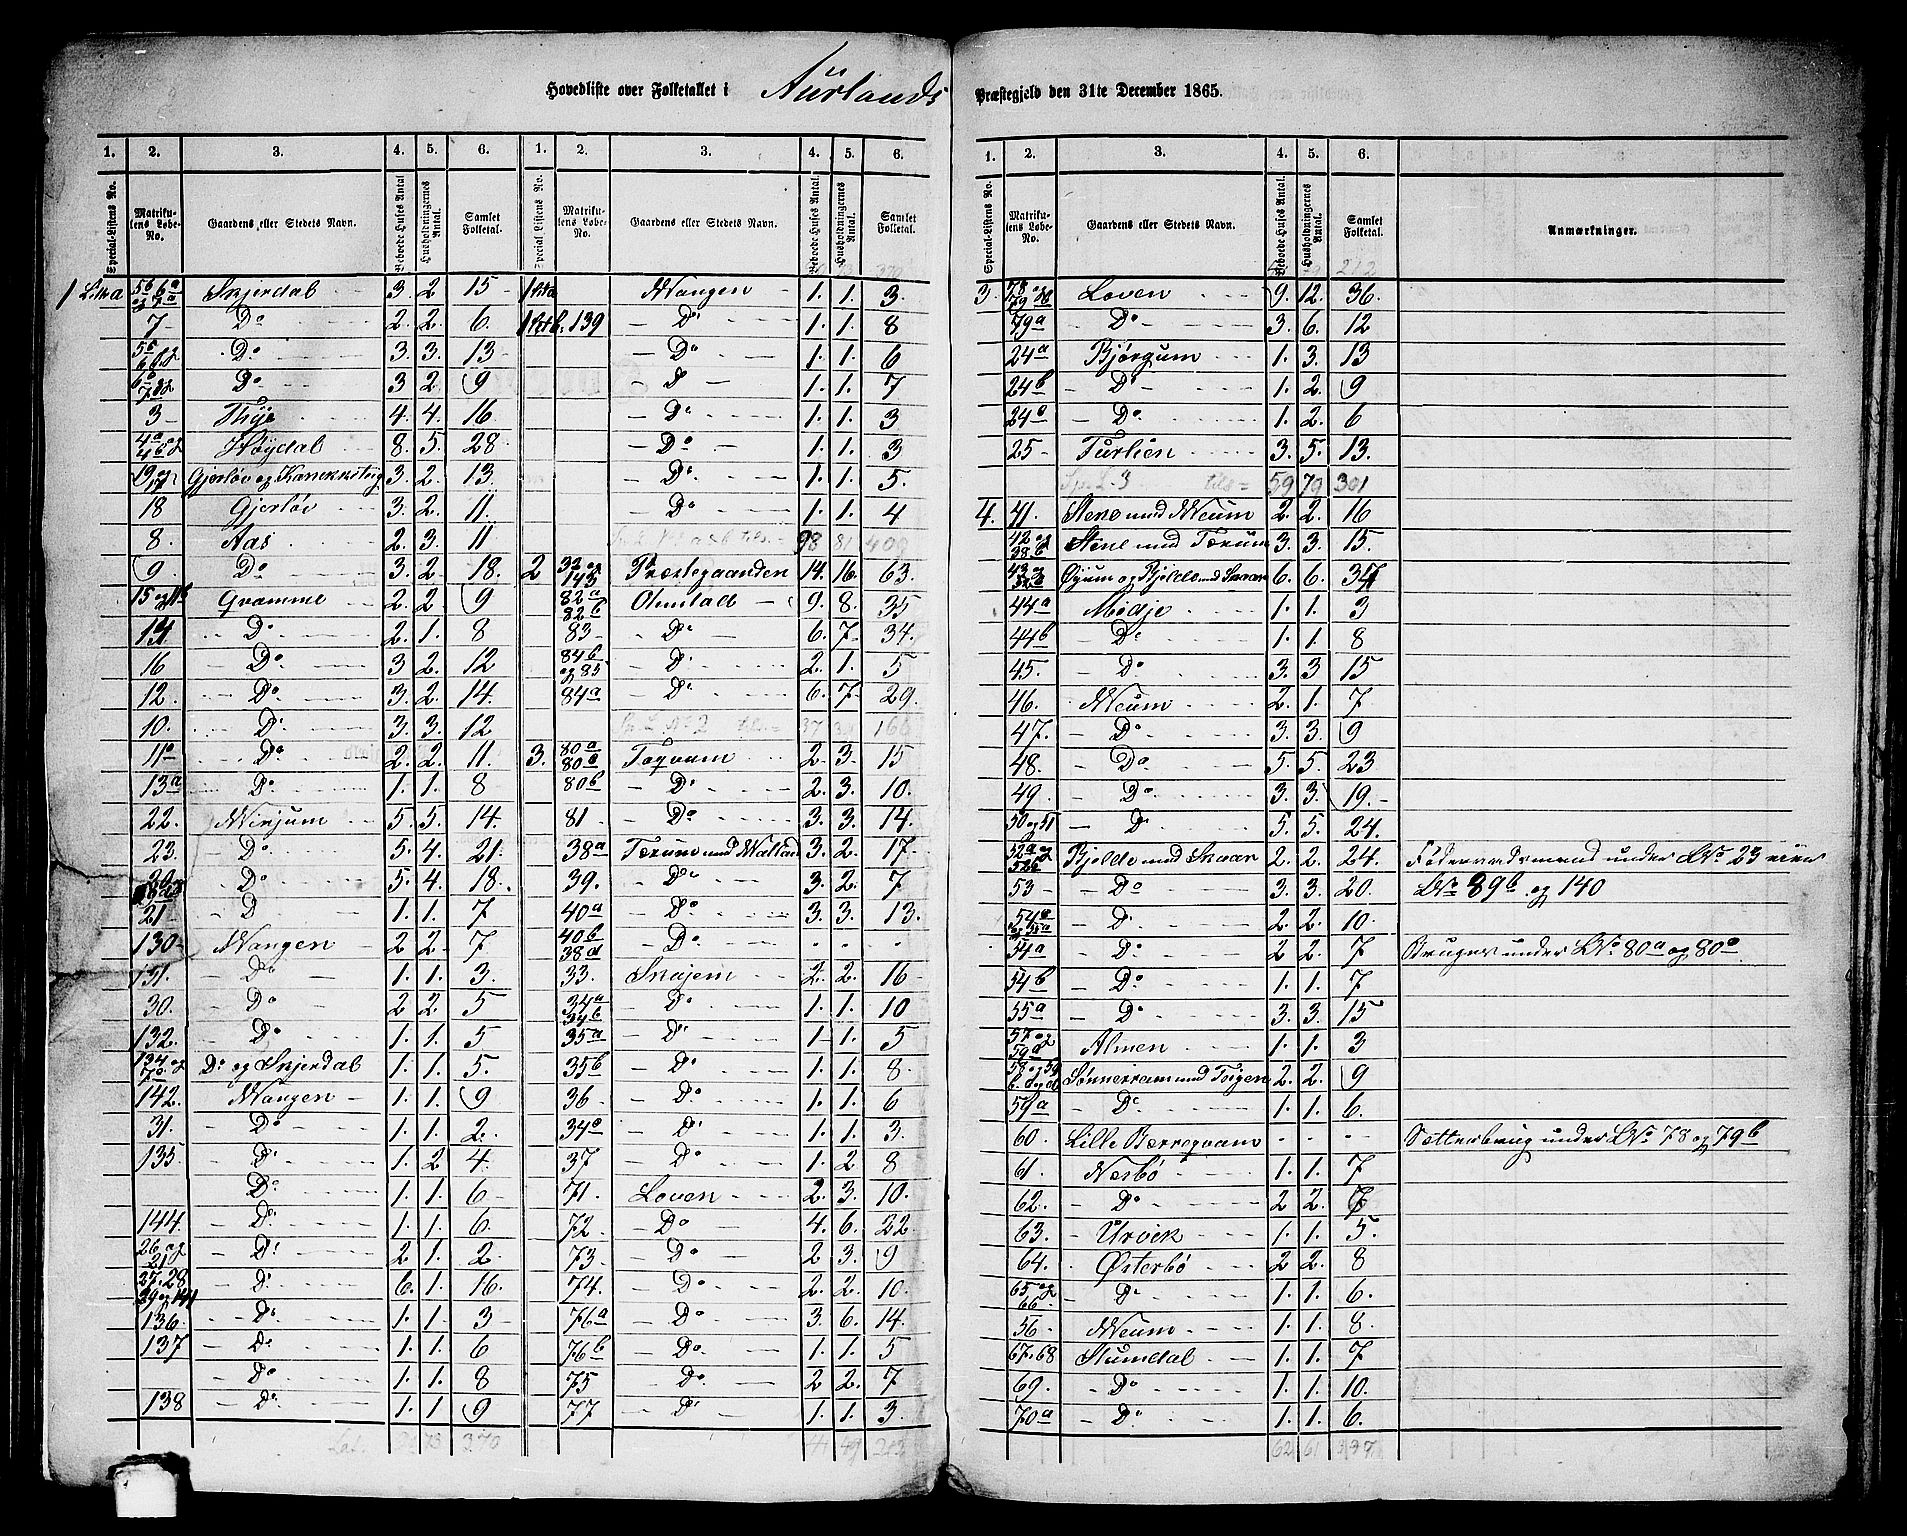 Hovedliste over Folketallet i Aurlands Præstegjeld den 31te December 1865.
1. 2. 3. 4. 5. 6. 1. 2. 3. 4. 5. 6.
Special-Listens No. Matrikulens Løbe-No. Gaardens eller Stedets Navn. Beboede Huses Antal Husholdningernes Antal. Samlet Folketal. Special Listens No. Matrikulens Løbe-No. Gaardens eller Stedets Navn. Beboede Huses Antal. Husholdningernes Antal. Samlet Folketal.
1 Litr a Skjerdal 3. 2. 15 1 Lit a Wangen 1. 1. 3.
7 Do 2. 2. 6. 1 Litr b. 139 Do 1. 1. 8
Do 3. 3. 13 Do 1. 1. 6
Do 3 2. 9 Do 1. 1. 7
3 Thye 4. 4. 16 Do 1. 1. 3
Høydal 8. 5. 28 Do 1. 1. 3
19 og Gjerløv og Kanekkstig 3. 2. 13. Do 1. 1. 5.
18 Gjerløv 3. 2. 11. Do 1. 1. 4
8. Aas 2. 3. 11 98 81 409
9. Do 3. 2. 18. 2 32 og 143 Præstegaarden 14. 16. 63.
15 og 11b Gramme 2. 2 9 82a 82b Onstad 9. 8. 35
14 Do 2. 1. 8 83 Do 6. 7 34.
16 Do 3 2. 12 84b og 85 Do 2. 1. 5
12. Do 3. 2. 14. 84a Do 6. 7 29
10. Do 3. 3. 12 Sp. L. No 2 tils. = 37 39 166
11a Do 2. 2. 11. 3. 80a 80c Toqvam 2. 3. 15
13a Do 1. 1. 8 80b Do 2. 3. 10.
22. Winjum 5. 5. 14. 81 Do 3. 3. 14.
23. Do 5. 4. 21. 38a Terum med Walland 3. 2. 17.
20 Do 5. 4. 18. 39. Do 3. 2. 7
21 Do 1. 1. 7 40a Do 3. 3. 13.
130 Wangen 2 2. 7 40b 38d Do
131. Do 1. 1. 3. 33. Skajem 2. 2. 16
30. Do 2 2. 5 34a 34b Do 1. 1. 10
132. Do 1. 1. 5 35a Do 1 1. 5
134 og 7c Do og Skjerdal 1. 1. 5. 35b Do 1. 1. 8.
142. Wangen 1. 1. 9 36 Do 1. 1. 6
31. Do 1. 1. 2. 34c Do 1. 1. 3.
135 Do 1. 2 4. 37 Do 1. 2 8
Do 1. 1. 6 71. Loven 2. 3. 10.
144. Do 1. 1. 6. 72 Do 4. 6. 22.
26 og 215 Do 2 1. 2 73 Do 2 3. 9
27. 28 29 og 141 Do 6. 1. 16. 74. Do 2. 2. 10.
136 Do 1. 1. 3 76a Do 3. 6. 14
137 Do 1. 1. 6 76b Do 1. 1. 5
Do 1. 1. 8 75 Do 2 2. 7
138 Do 1. 1. 9 77 Do 1. 1. 3.
Lat. 73 370 49 212
1. 2. 3. 4. 5. 6.
Special-Listens No. Matrikulens Løbe-No. Gaardens eller Stedets Navn. Beboede Huses Antal. Husholdningernes Antal. Samlet Folketal. Anmærkninger.
3. Loven 9. 12. 36.
79a Do 3. 6. 12
24a Bjørgum 1. 3. 13
24b Do 1. 2. 9
24c Do 1. 2 6
25 Turlien 3. 5. 13.
Sp. L. 3 tils = 59 79 301
4. 41. Stene med Weum 2. 2. 16
42 og 38b Stene med Terum 3. 3. 15.
Øyum og Bjelde med Skaar 6. 6. 34
44a Midje 1. 1. 3
44b Do 1. 1. 8
45. Do 3. 3 15
46. Weum 2. 1. 7
47. Do 3. 3. 9
48. Do 5. 5. 23
49. Do 3. 3. 19.
50 og 51 Do 5. 5. 24.
52a og Bjelde med Skaar 2. 2. 24. Føderaadsmand under LNo 23 eier
53 Do 3. 3. 20. LNo 89b og 140
Do 2. 2. 10.
54a Do 2 2. 7 Bruges under LNo 80a og 80c
54b Do 1. 1. 7
55a Do 3. 3. 15
57 og 59d Almen 1. 1. 3
Sønneraam med Torgen 2. 2. 9
59a Do 1. 1. 6.
60. Lille Berreqvam Sætterbrug under LNo 78 og 79b
61. Nesbø 1. 1. 7
62. Do 2 2. 7
63. Urvik 1. 1. 5.
64. Østerbø 2 2. 8
65 og 66 Do 1. 1. 6.
56 Weum 1. 1. 8.
67. 68 Stumdal 1. 1. 7
69. Do 1. 1. 10.
70a Do 1. 1. 6.
62 61 397